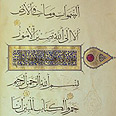 السموات وما في الارض
الا الى الله تصير الامور
بسم الله الرحمن الرحيم
حم والكتاب المبين انا